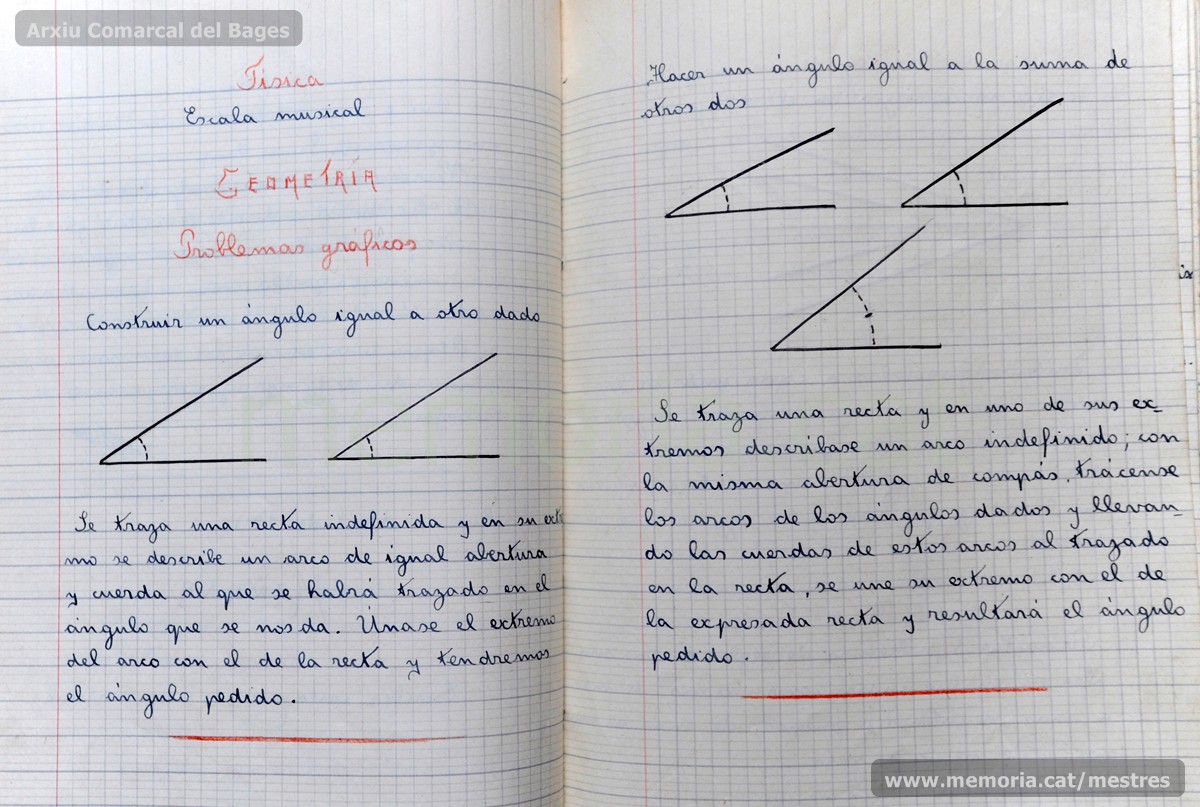 Arxiu Comarcal del Bages
Física
Escala musical
GEOMETRÍA
Problemas gráficos
Construir un ángulo igual a otro dado
Se traza una recta indefinida y en su extre
mo se describe un arco de igual abertura
y cuerda al que se habrá trazado en el
ángulo que se nos da. Únase el extremo
del arco con el de la recta y tendremos
el ángulo pedido.
Hacer un ángulo igual a la suma de
otros dos
Se traza una recta y en uno de sus ex-
tremos descríbase un arco indefinido; con
la misma abertura de compás, trácense
los arcos de los ángulos dados y llevan-
do las cuerdas de estos arcos al trazado
en la recta, se une su extremo con el de
la expresada recta y resultará el ángulo
pedido.
www.memoria.cat/mestres